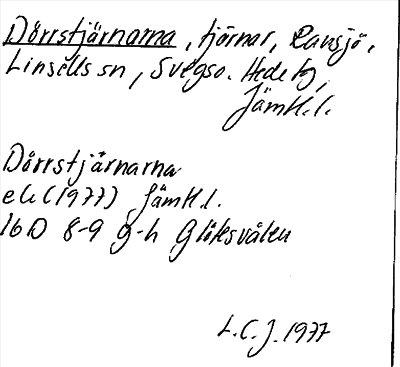 Dörrstjärnarna, tjörnar, Ransjö,
Linsells sn, Svegso. Hede tg,
Jämtl.l.
Dörrstjärnarna
ek (1977) Jämtl.l.
16D 8-9 g-h Glötesvålen
L.C.J. 1977